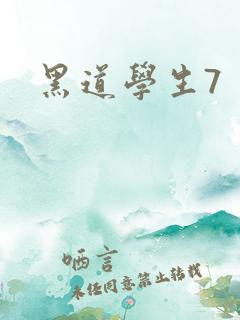 黑道學生7
哂言
未经同意禁止转载